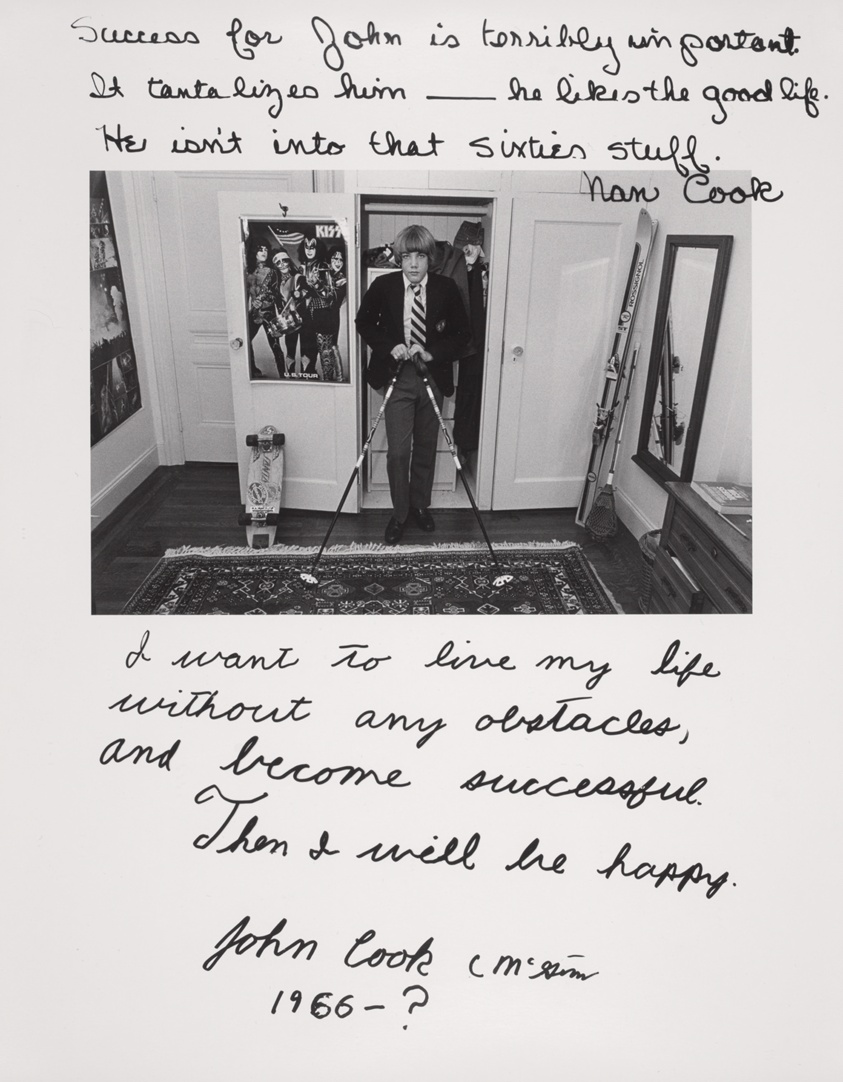 Success for John is terribly important.
It tantalizes him — he likes the good life.
He isn't into that sixties stuff.
Nan Cook
KISS
U.S. TOUR
ROSSIGNOL
I want to live my life
without any obstacles,
and become successful.
Then I will be happy.
John Cook
1966–?